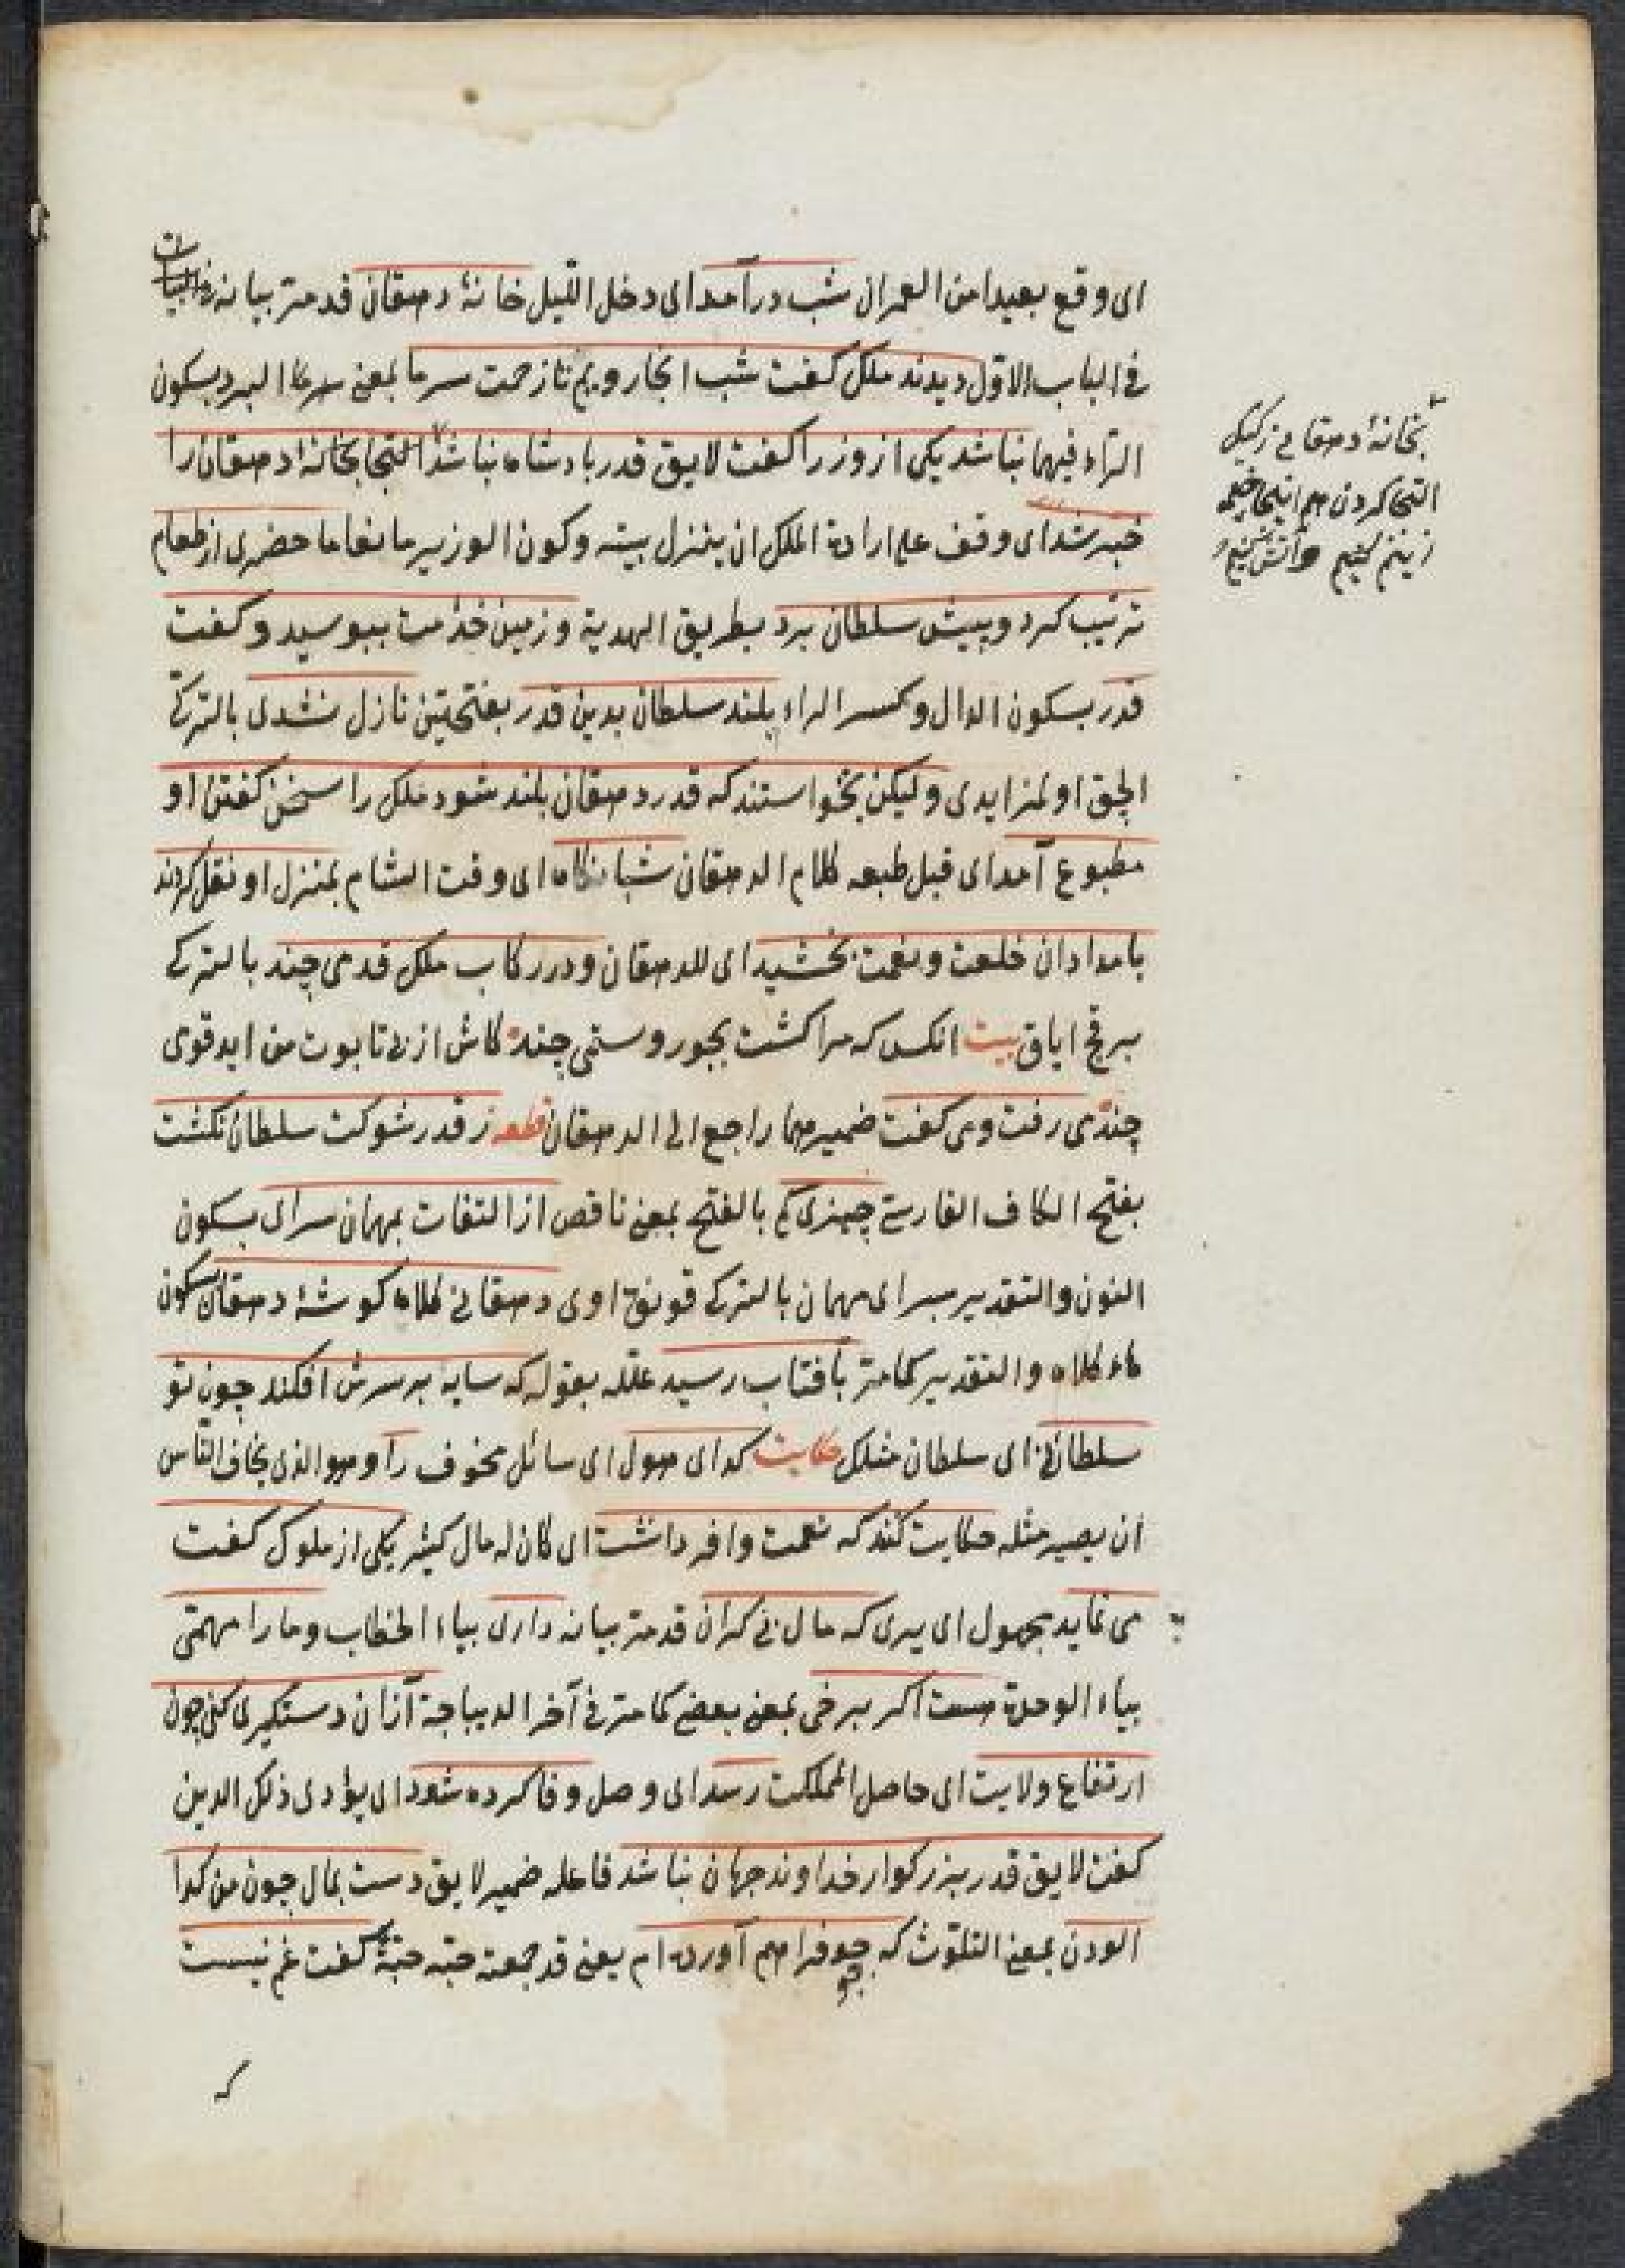 ای وقع بعیدا من العمران شب درآمد ای دخل اللیل خانهٔ دهقان قد مر بیانه فی ابیات
فی الباب الاوّل دیدند ملک کفت شب انجا رویم تا زحمت سرما بمعنی سرما البرد بسکون
الراء فیهما نباشد یکی از وزرا کفت لایق قدر بادشاه نباشد التجا بخانهٔ دهقان را
خبر شد ای وقف علی ارادة الملک ان ینزل بیته وکون الوزیر مانعا ما حضری از طعام
ترتیب کرد وپیش سلطان برد بطریق الهدیة وزمین خذمت ببوسید وکفت
قدر بسکون الدال وکسر الراء بلند سلطان بدین قدر بفتحتین نازل نشدی بالترکی
الچق اولمزایدی ولیکن نخواستند که قدر دهقان بلند شود ملک را سخن کفتن او
مطبوع آمد ای قبل طبعه کلام الدهقان شبانکاه ای وقت الشام بمنزل او نقل کردند
بامدادان خلعت ونعمت بخشید ای للدهقان ودر رکاب ملک قدمی چند بالترکی
برقچ ایاق بیت انکس که مرا کشت بجور وستمی چند کاش از پی تابوت من اید قدمی
چند می رفت ومی کفت ضمیرهما راجع الی الدهقان قطعه ز قدر شوکت سلطان نکشت
بفتح الکاف الفارسی چیزی کم بالفتح بمعنی ناقص از التفات بمهمان سرای بسکون
النون والتقدیر بسرای مهمان بالترکی قونق اوی دهقانی کلاه کوشهٔ دهقان بسکون
هاء کلاه والتقدیر کما مر بآفتاب رسید علله بقوله که سایه بر سرش افکند چون تو
سلطانی ای سلطان مثلک حکایت کدای هول ای سائل مخوف را وهو الذی یخاف الناس
ان یصیر مثله حکایت کند که نعمت وافر داشت ای کان له مال کثیر یکی از ملوک کفت
می نماید مجهول ای یری که مال بی کران قد مر بیانه داری بیاء الخطاب وما را مهمّی
بیاء الوحدة هست اکر برخی بمعنی بعضی کما مر فی آخر الدیباجة آزان دستکیری کنی چون
ارتفاع ولایت ای حاصل المملکت رسد ای وصل وفا کرده شود ای یؤدی ذلک الدین
کفت لایق قدر بزرکوار خداوند جهان نباشد فاعله ضمیر لایق دست بمال چون من کدا
الودن بمعنی التلوّث که جو فراهم آورده ام یعنی قد جمعته حبّه حبّة کفت غم نیست
جو
که
بخانهٔ دهقانی رکیک
التجا کردن هم اینجا خیمه
زنیم وآتش کنیم